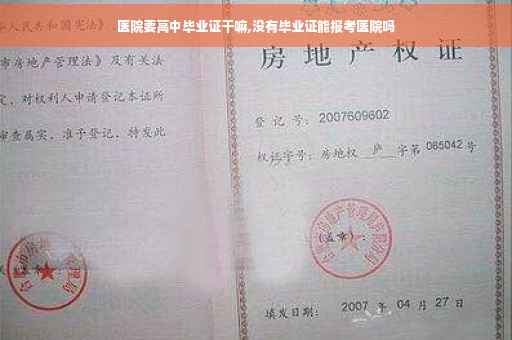 医院要高中毕业证干嘛,没有毕业证能报考医院吗
人民共和国宪法》
市房地产管理法》及有关法
定，对权利人申请登记本证所
审查属实，准予登记，特发此
房地产权证
登记号：2007609602
权证字号：房地权 庐 字第 085042 号
(盖章)：
填发日期： 2007 年 04 月 27 日